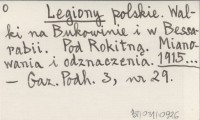 Legiony polskie. Wal-
ki na Bukowinie i w Bessa-
rabii. Pod Rokitną. Miano-
wania i odznaczenia. 1915...
— Gaz. Podh. 3, nr 29.